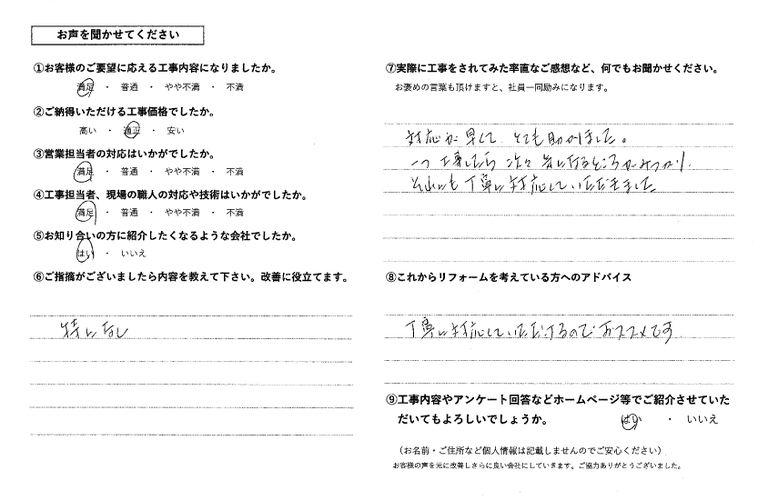 お声を聞かせてください
①お客様のご要望に応える工事内容になりましたか。
満足 ・ 普通 ・ やや不満 ・ 不満
②ご納得いただける工事価格でしたか。
高い ・ 適正 ・ 安い
③営業担当者の対応はいかがでしたか。
満足 ・ 普通 ・ やや不満 ・ 不満
④工事担当者、現場の職人の対応や技術はいかがでしたか。
満足 ・ 普通 ・ やや不満 ・ 不満
⑤お知り合いの方に紹介したくなるような会社でしたか。
はい ・ いいえ
⑥ご指摘がございましたら内容を教えて下さい。改善に役立てます。
特になし
⑦実際に工事をされてみた率直なご感想など、何でもお聞かせください。
お褒めの言葉も頂けますと、社員一同励みになります。
対応が早くて とても助かりました。
一つ工事したら 次々 気になるところがみつかり、
それにも丁寧に対応していただきました
⑧これからリフォームを考えている方へのアドバイス
丁寧に対応していただけるので おススメです
⑨工事内容やアンケート回答などホームページ等でご紹介させていた
だいてもよろしいでしょうか。 はい ・ いいえ
（お名前・ご住所など個人情報は記載しませんのでご安心ください）
お客様の声を元に改善しさらに良い会社にしていきます。ご協力ありがとうございました。